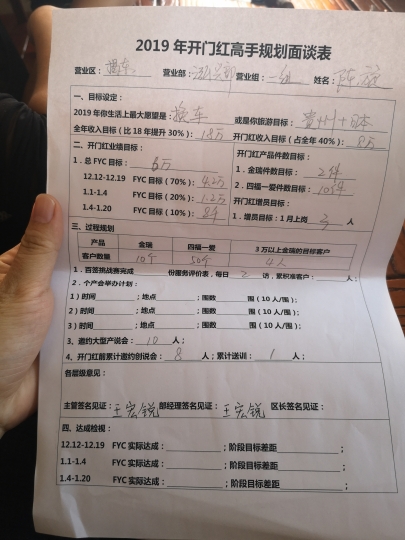 2019年开门红高手规划面谈表
营业区： 营业部： 营业组：一组 姓名：陈
一、目标设定：
2019年你生活上最大愿望是：换车 或是你旅游目标：贵州+日本
全年收入目标（比18年提升30%）：18万 开门红收入目标（占全年40%）：8万
二、开门红业绩目标：
1．总FYC目标：6万
12.12-12.19 FYC目标（70%）：4.2万
1.1-1.4 FYC目标（20%）：1.2万
1.4-1.20 FYC目标（10%）：
开门红产品件数目标：
1．金瑞件数目标：2件
2．四福一爱件数目标：10件
开门红增员目标：
1．增员目标：1月上岗 3 人
三、过程规划
产品 金瑞 四福一爱 3万以上金瑞的目标客户
客户数量 10个 50个 4人
1．百签挑战赛完成 份服务评价表，每日 2 访，累积准客户： 人；
2．个产会举办计划：
1）时间 ；地点 ；围数 围（10人/围）；
2）时间 ；地点 ；围数 围（10人/围）；
3）时间 ；地点 ；围数 围（10人/围）；
3、邀约大型产说会：10 人；
4、开门红前累计邀约创说会：8 人；累计送训：1 人；
各层级意见：
主管签名见证：王宏锐 部经理签名见证：王宏锐 区长签名见证：
四、达成检视：
12.12-12.19 FYC实际达成： ；阶段目标差距 ；
1.1-1.4 FYC实际达成： ；阶段目标差距 ；
1.4-1.20 FYC实际达成： ；阶段目标差距 ；